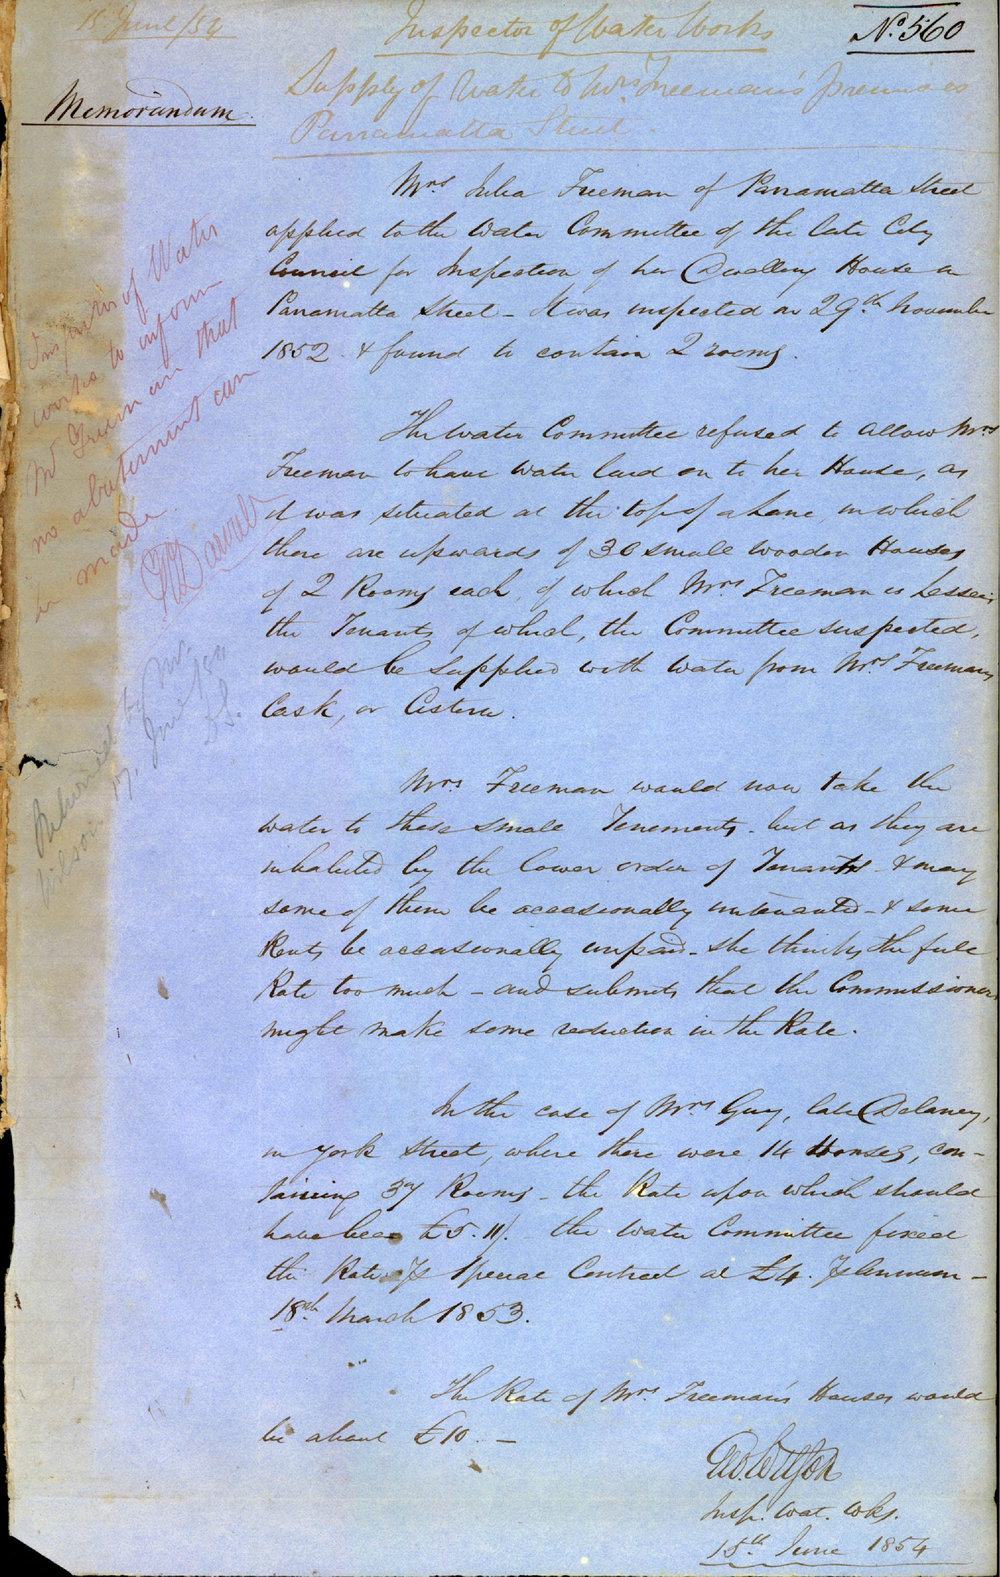 15 June/54
Inspector of Water Works
No. 560
Supply of Water to Mrs. Freeman's premises
Parramatta Street.
Memorandum.
Mrs Julia Freeman of Parramatta Street
applied to the Water Committee of the late City
Council for Inspection of her Dwelling House in
Parramatta Street - It was inspected on 29th November
1852. & found to contain 2 rooms.
The Water Committee refused to allow Mrs
Freeman to have water laid on to her House, as
it was situated at the top of a Lane, in which
there are upwards of 30 small wooden Houses
of 2 Rooms each, of which Mrs. Freeman is Lessee,
the Tenants of which, the Committee suspected,
would be supplied with water from Mrs Freemans
Cask, or Cistern.
Mrs. Freeman would now take the
water to these small Tenements - but as they are
inhabited by the lower order of Tenants - & may
some of them be occasionally untenanted - & some
Rents be occasionally unpaid - she thinks the full
Rate too much - and submits that the Commissioners
might make some reduction in the Rate.
In the case of Mrs Guy, late Delaney,
in York Street, where there were 14 Houses, con-
taining 37 Rooms - the Rate upon which should
have been £5.11/. - the Water Committee fixed
the Rate by Special Contract at £4. per Annum -
18th March 1853.
The Rate of Mrs Freeman's Houses would
be about £10. -
Geo. Wilson
Insp. Wat. Wks.
15th June 1854
Inspector of Water
works to inform
Mrs Freeman that
no abatement can
be made.
Returned by Mr.
Wilson 17. June/54